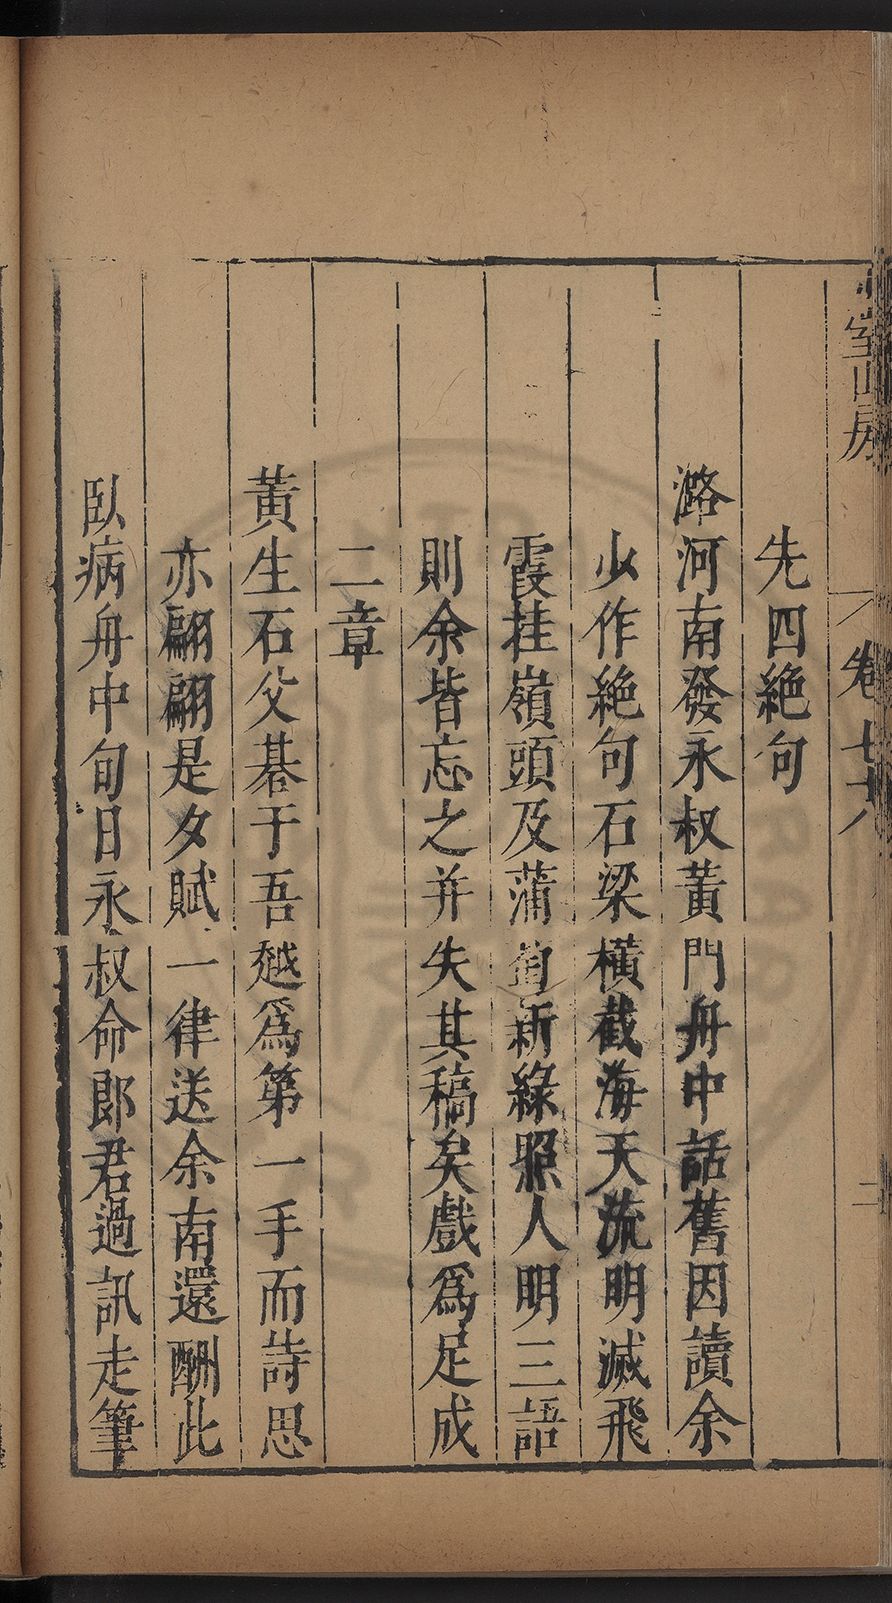 室山房
卷七十八
二
先四絶句
潞河南發永叔黃門舟中話舊因讀余
少作絶句石梁橫截海天流明滅飛
霞挂嶺頭及蒲萄新綠照人明三語
則余皆忘之并失其稿矣戲爲足成
二章
黃生石父碁于吾越爲第一手而詩思
亦翩翩是夕賦一律送余南還酬此
臥病舟中旬日永叔命郎君過訊走筆